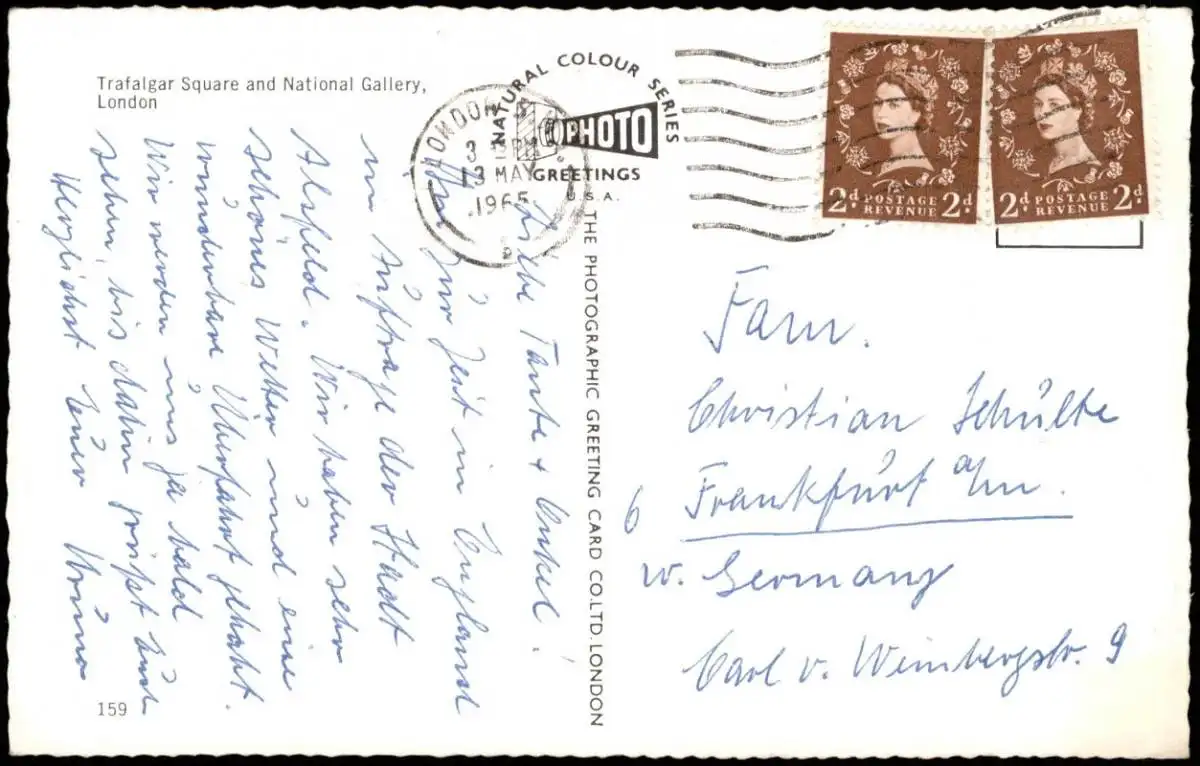 Trafalgar Square and National Gallery,
London
NATURAL COLOUR SERIES
PHOTO
GREETINGS
U.S.A.
LONDON
3
13 MAY
1965
2d POSTAGE REVENUE 2d.
2d POSTAGE REVENUE 2d.
THE PHOTOGRAPHIC GREETING CARD CO.LTD. LONDON
Liebe Tante + Onkel!
zur Zeit in England
im Auftrage der Stadt
Alsfeld. Wir haben sehr
schönes Wetter und eine
wunderbare Überfahrt gehabt.
Wir werden uns ja bald
sehen, bis dahin grüßt Euch
Herzlichst Euer Bruno
Fam.
Christian Schulte
6 Frankfurt a/m.
W. Germany
Carl v. Weinbergstr. 9
159